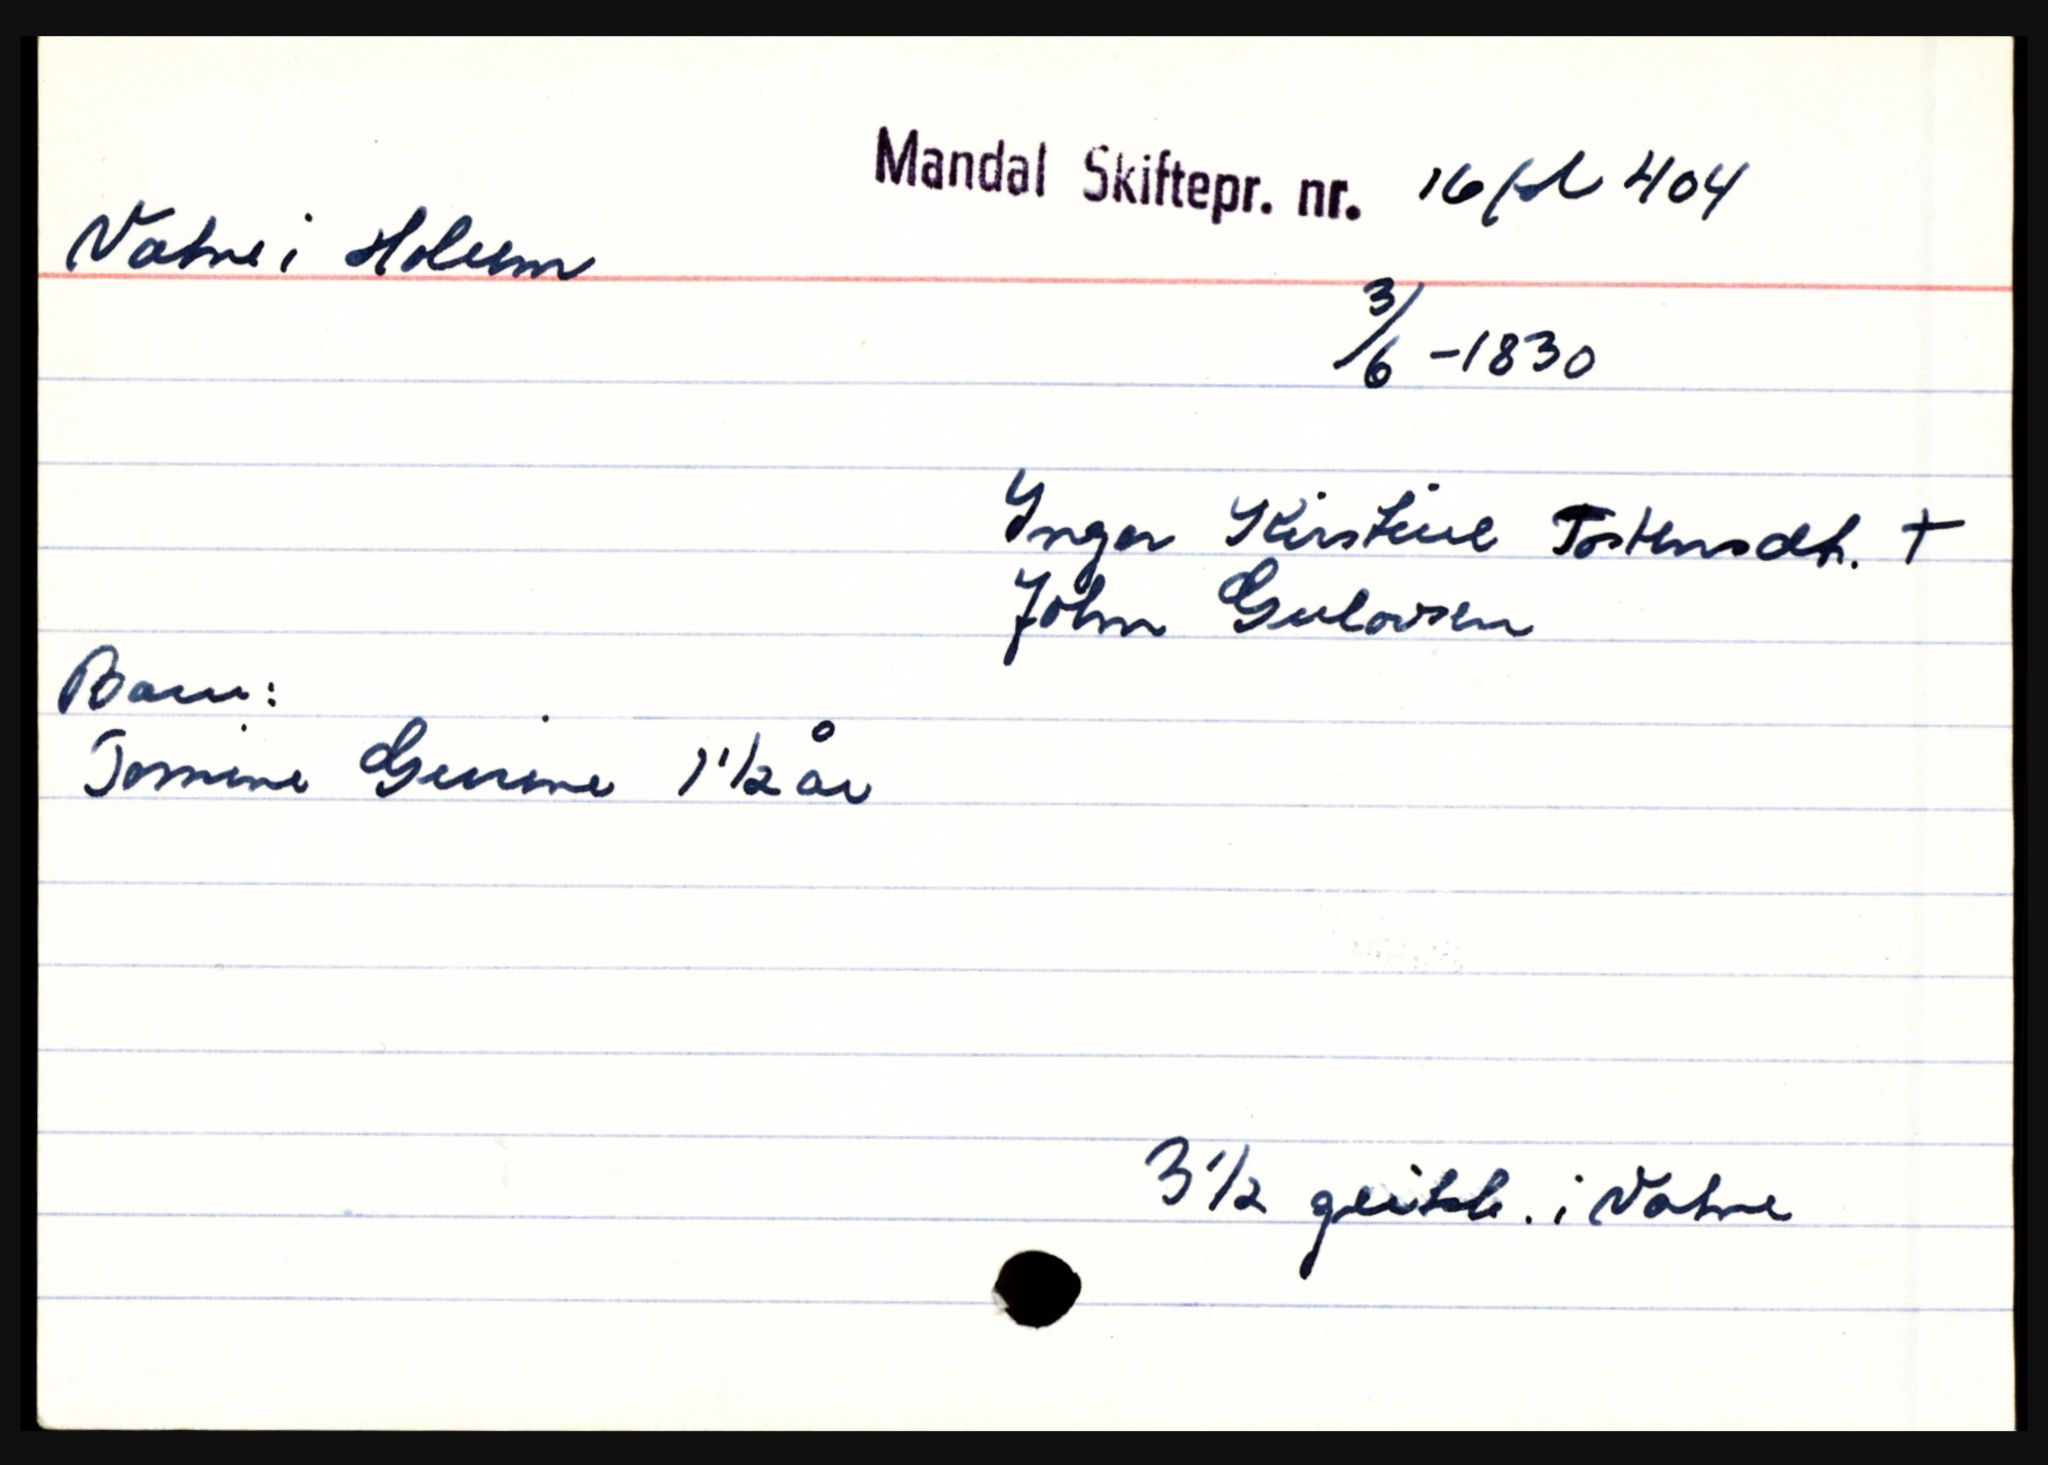 Mandal Skiftepr. nr. 16 fol 404
Vatne i Holum
3/6 -1830
Inger Kirstine Tostensdt. †
John Gulovsen
Barn:
Tomine Gurine 1 1/2 år
3 1/2 geitsk. i Vatne